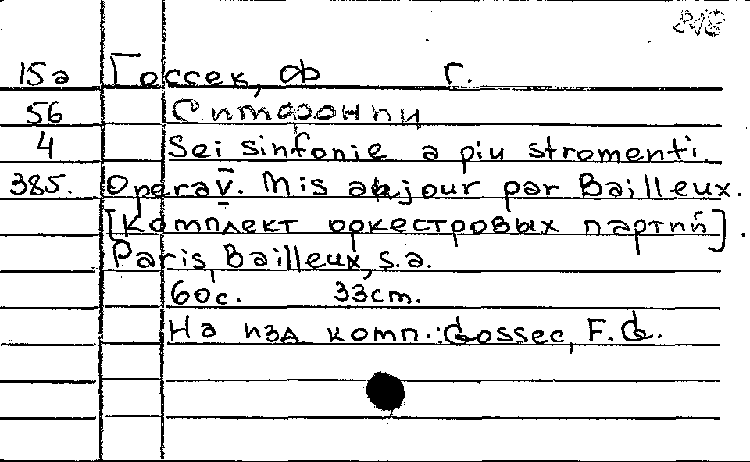 15а Госсек, Ф Г.
56 Симфонии
4 Sei sinfonie a piu stromenti.
385. Opera V. Mis au jour par Bailleux.
[Комплект оркестровых партий].
Paris, Bailleux, s.a.
60с. 33cm.
На изд. комп.: Gossec, F.G.